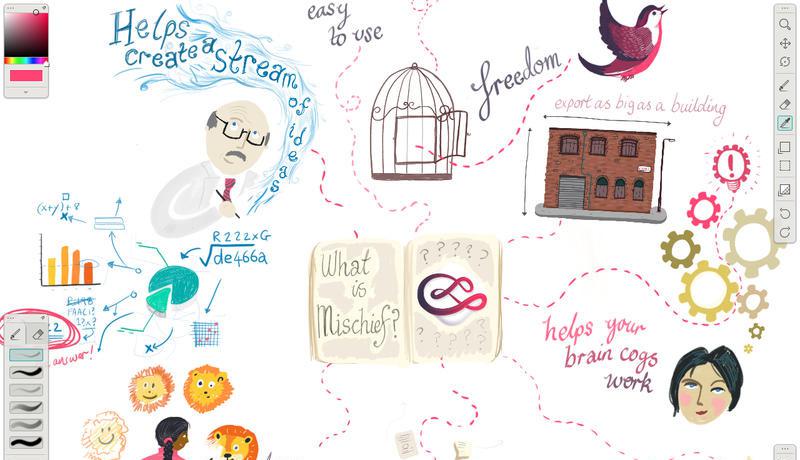 Helps
create a stream
of ideas
easy
to use
freedom
export as big as a building
(x+y)+8
x
R222xG
√de466a
What
is
Mischief?
? ? ? ? ?
? ? ? ?
!
helps your
brain cogs
work
answer!
x